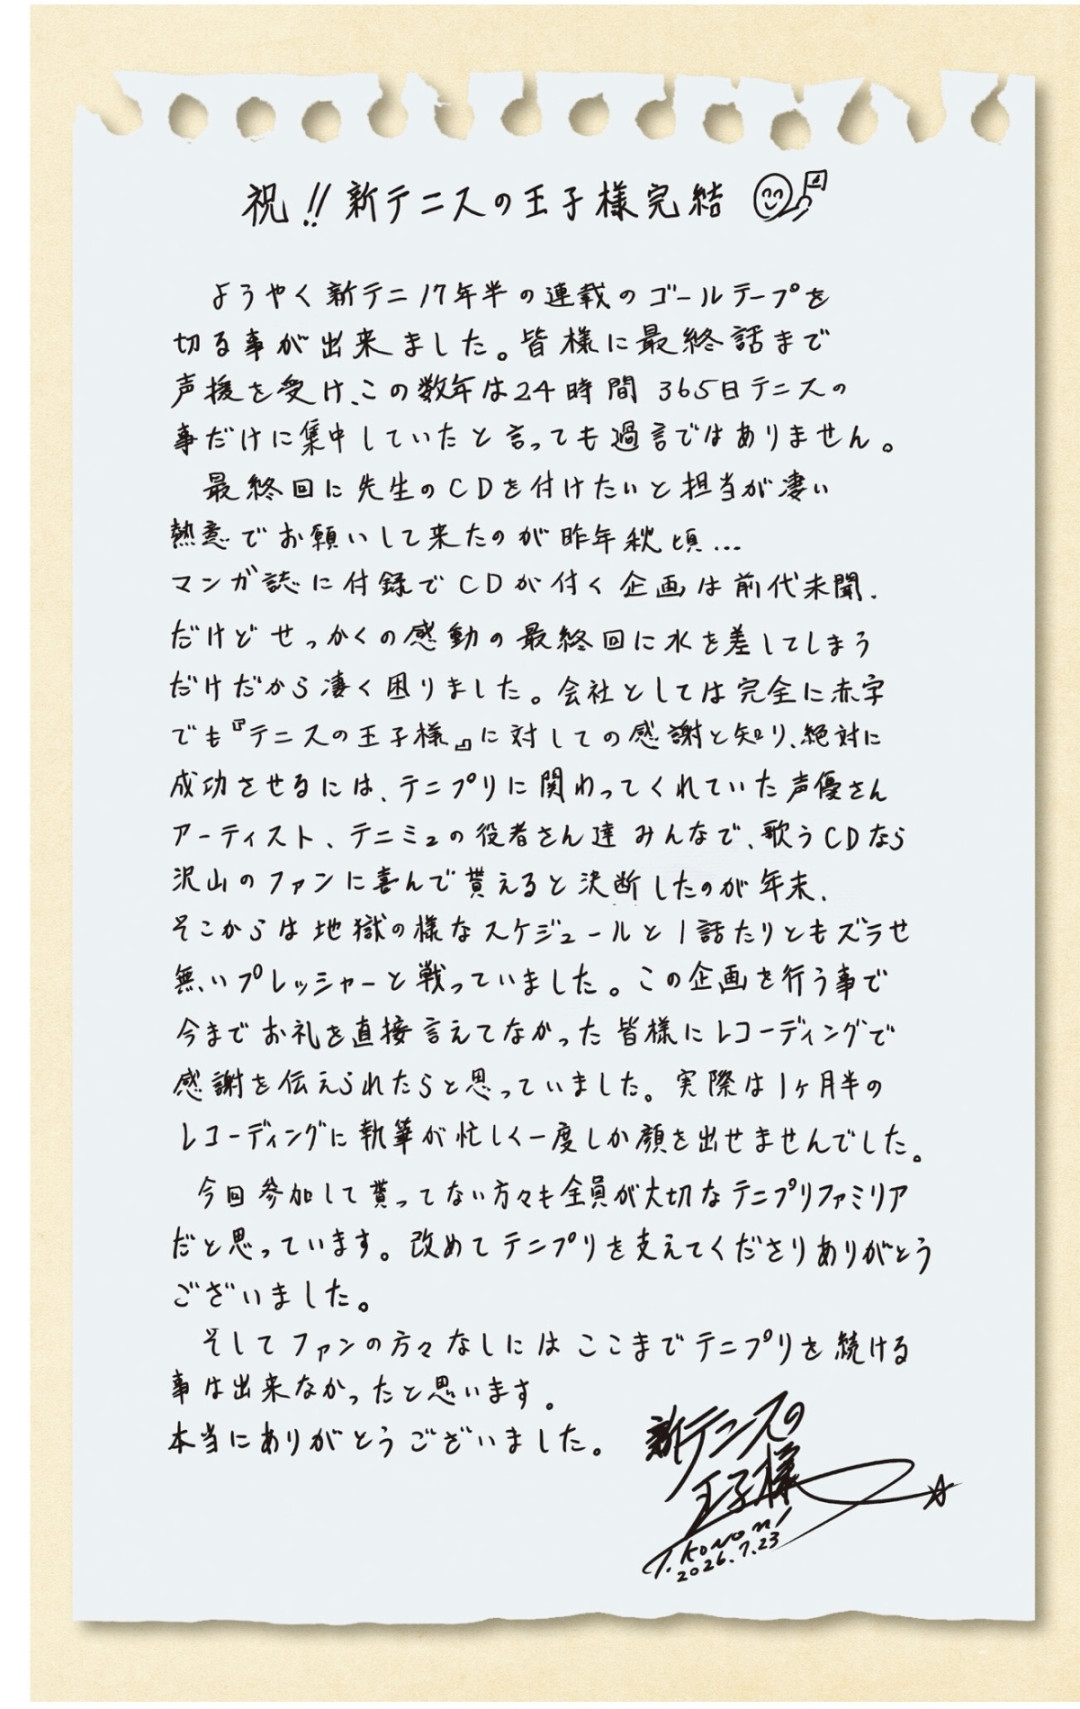 祝!!新テニスの王子様完結
ようやく新テニ17年半の連載のゴールテープを
切る事が出来ました。皆様に最終話まで
声援を受け、この数年は24時間 365日テニスの
事だけに集中していたと言っても過言ではありません。
最終回に先生のCDを付けたいと担当が凄い
熱意でお願いして来たのが昨年秋頃…
マンガ誌に付録でCDが付く企画は前代未聞、
だけどせっかくの感動の最終回に水を差してしまう
だけだから凄く困りました。会社としては完全に赤字
でも『テニスの王子様』に対しての感謝と知り、絶対に
成功させるには、テニプリに関わってくれていた声優さん
アーティスト、テニミュの役者さん達みんなで、歌うCDなら
沢山のファンに喜んで貰えると決断したのが年末、
そこからは地獄の様なスケジュールと1話たりともズラせ
無いプレッシャーと戦っていました。この企画を行う事で
今までお礼を直接言えてなかった皆様にレコーディングで
感謝を伝えられたらと思っていました。実際は1ヶ月半の
レコーディングに執筆が忙しく一度しか顔を出せませんでした。
今回参加して貰ってない方々も全員が大切なテニプリファミリア
だと思っています。改めてテニプリを支えてくださりありがとう
ございました。
そしてファンの方々なしにはここまでテニプリを続ける
事は出来なかったと思います。
本当にありがとうございました。
新テニスの
王子様
T.KONOMI
2026.7.23